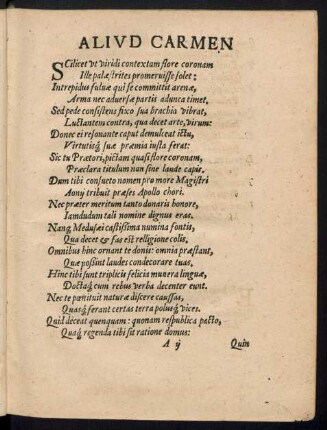 ALIVD CARMEN
SCilicet vt viridi contextam flore coronam
Ille palæstrites promeruisse solet:
Intrepidus fuluæ qui se committit arenæ,
Arma nec aduersæ partis adunca timet,
Sed pede consistens fixo sua brachia vibrat,
Luctantem contra, qua decet arte, virum:
Donec ei resonante caput demulceat ictu,
Virtutisq́ suæ præmia iusta ferat:
Sic tu Prætori, pictam quasi flore coronam,
Præclara titulum nunc sine laude capis.
Dum tibi consueto nomen pro more Magistri
Aonij tribuit præses Apollo chori.
Nec præter meritum tanto donaris honore,
Iamdudum tali nomine dignus eras.
Nanq́ Medusæi castissima numina fontis,
Qua decet & fas est religione colis,
Omnibus hinc ornant te donis: omnia præstant,
Quæ possint laudes condecorare tuas,
Hinc tibi sunt triplicis felicia munera linguæ,
Doctaq́ cum rebus verba decenter eunt.
Nec te pœnituit naturæ discere caussas,
Quasq́ ferant certas terra polusq́ vices.
Quid deceat quenquam: quonam respublica pacto,
Quaq́ regenda tibi sit ratione domus:
A ij Quin